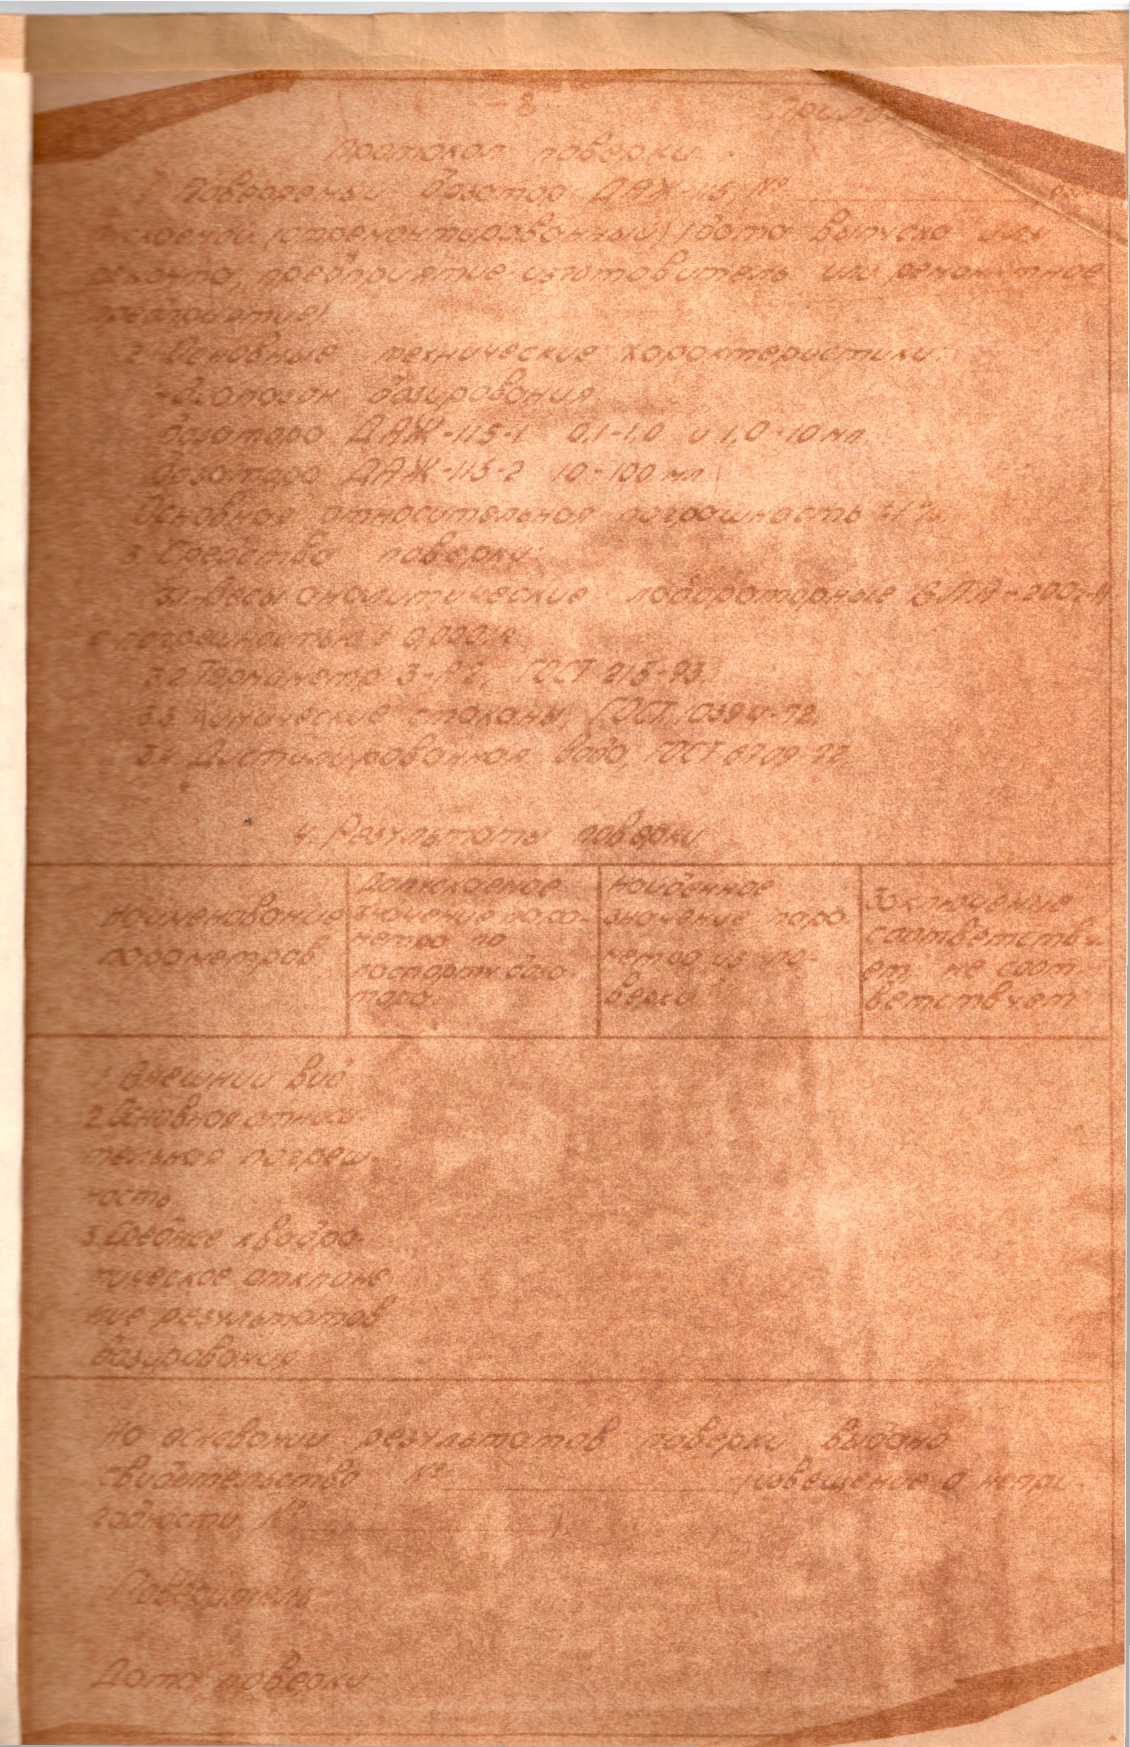 - 8 -
Протокол поверки
1. Поверяемый дозатор ДАЖ-115 №
(отремонтированный) (дата выпуска или
ремонта предприятие изготовитель или ремонтное
предприятие)
2. Основные технические характеристики:
- диапазон дозирования
дозатора ДАЖ-115-1 0,1-1,0 и 1,0-10 мл.
дозатора ДАЖ-115-2 10-100 мл.
Основная относительная погрешность ±1%.
3. Средства поверки:
3.1. Весы аналитические лабораторные
с погрешностью ±
3.2. Термометр ГОСТ 215-
3.3. стаканы, ГОСТ 10394-72.
3.4. Дистиллированная вода, ГОСТ 6709-72.
4. Результаты поверки
Наименование параметров
Допускаемое значение пара-
метра по
паспорту доза-
тора
Найденное
значение пара-
метра из по-
верки
Заключение
соответству-
ет, не соот-
ветствует
1. Внешний вид
2. Основная относи-
тельная погреш-
ность
3. Среднее квадра-
тическое отклоне-
ние результатов
дозирования
На основании результатов поверки выдано
свидетельство № (извещение о непри-
годности № ).
Поверитель
Дата поверки